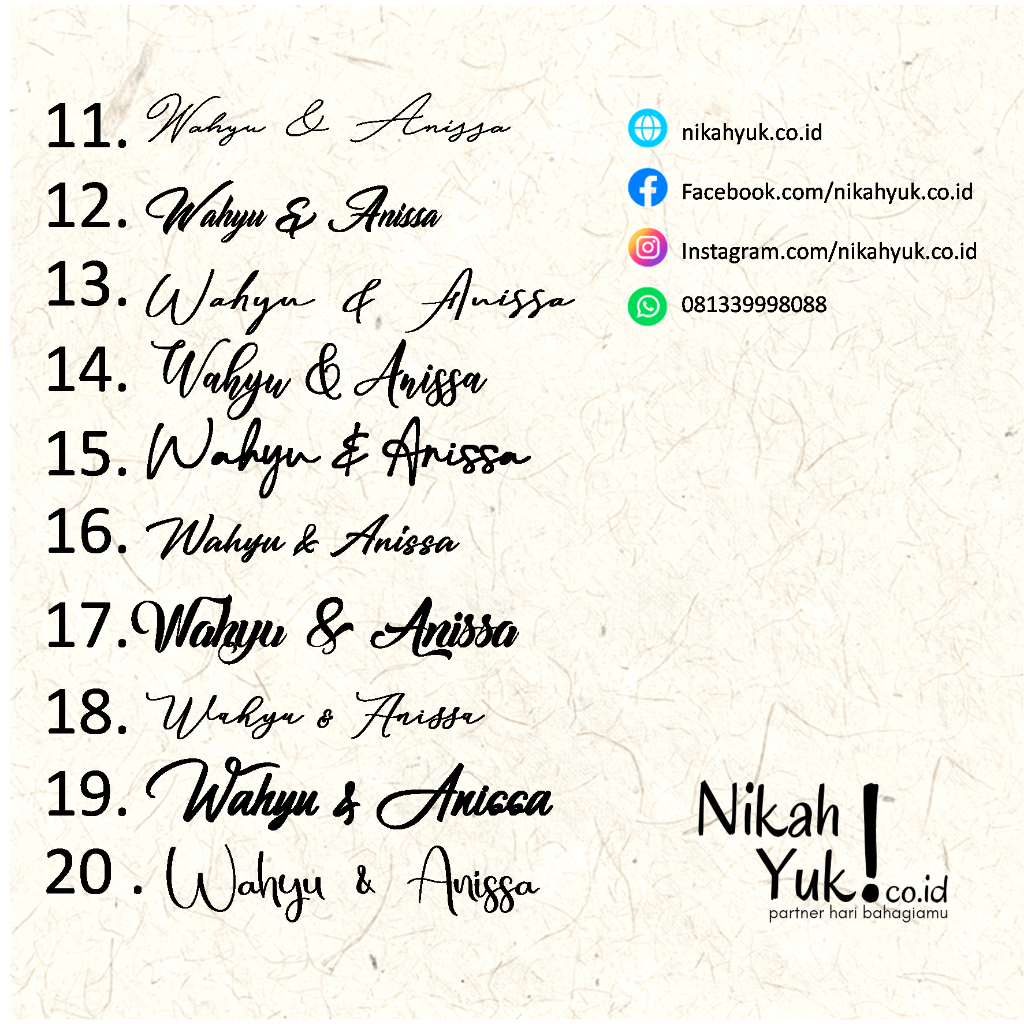 11. Wahyu & Anissa
12. Wahyu & Anissa
13. Wahyu & Anissa
14. Wahyu & Anissa
15. Wahyu & Anissa
16. Wahyu & Anissa
17. Wahyu & Anissa
18. Wahyu & Anissa
19. Wahyu & Anissa
20 . Wahyu & Anissa
nikahyuk.co.id
Facebook.com/nikahyuk.co.id
Instagram.com/nikahyuk.co.id
081339998088
Nikah
Yuk!.co.id
partner hari bahagiamu